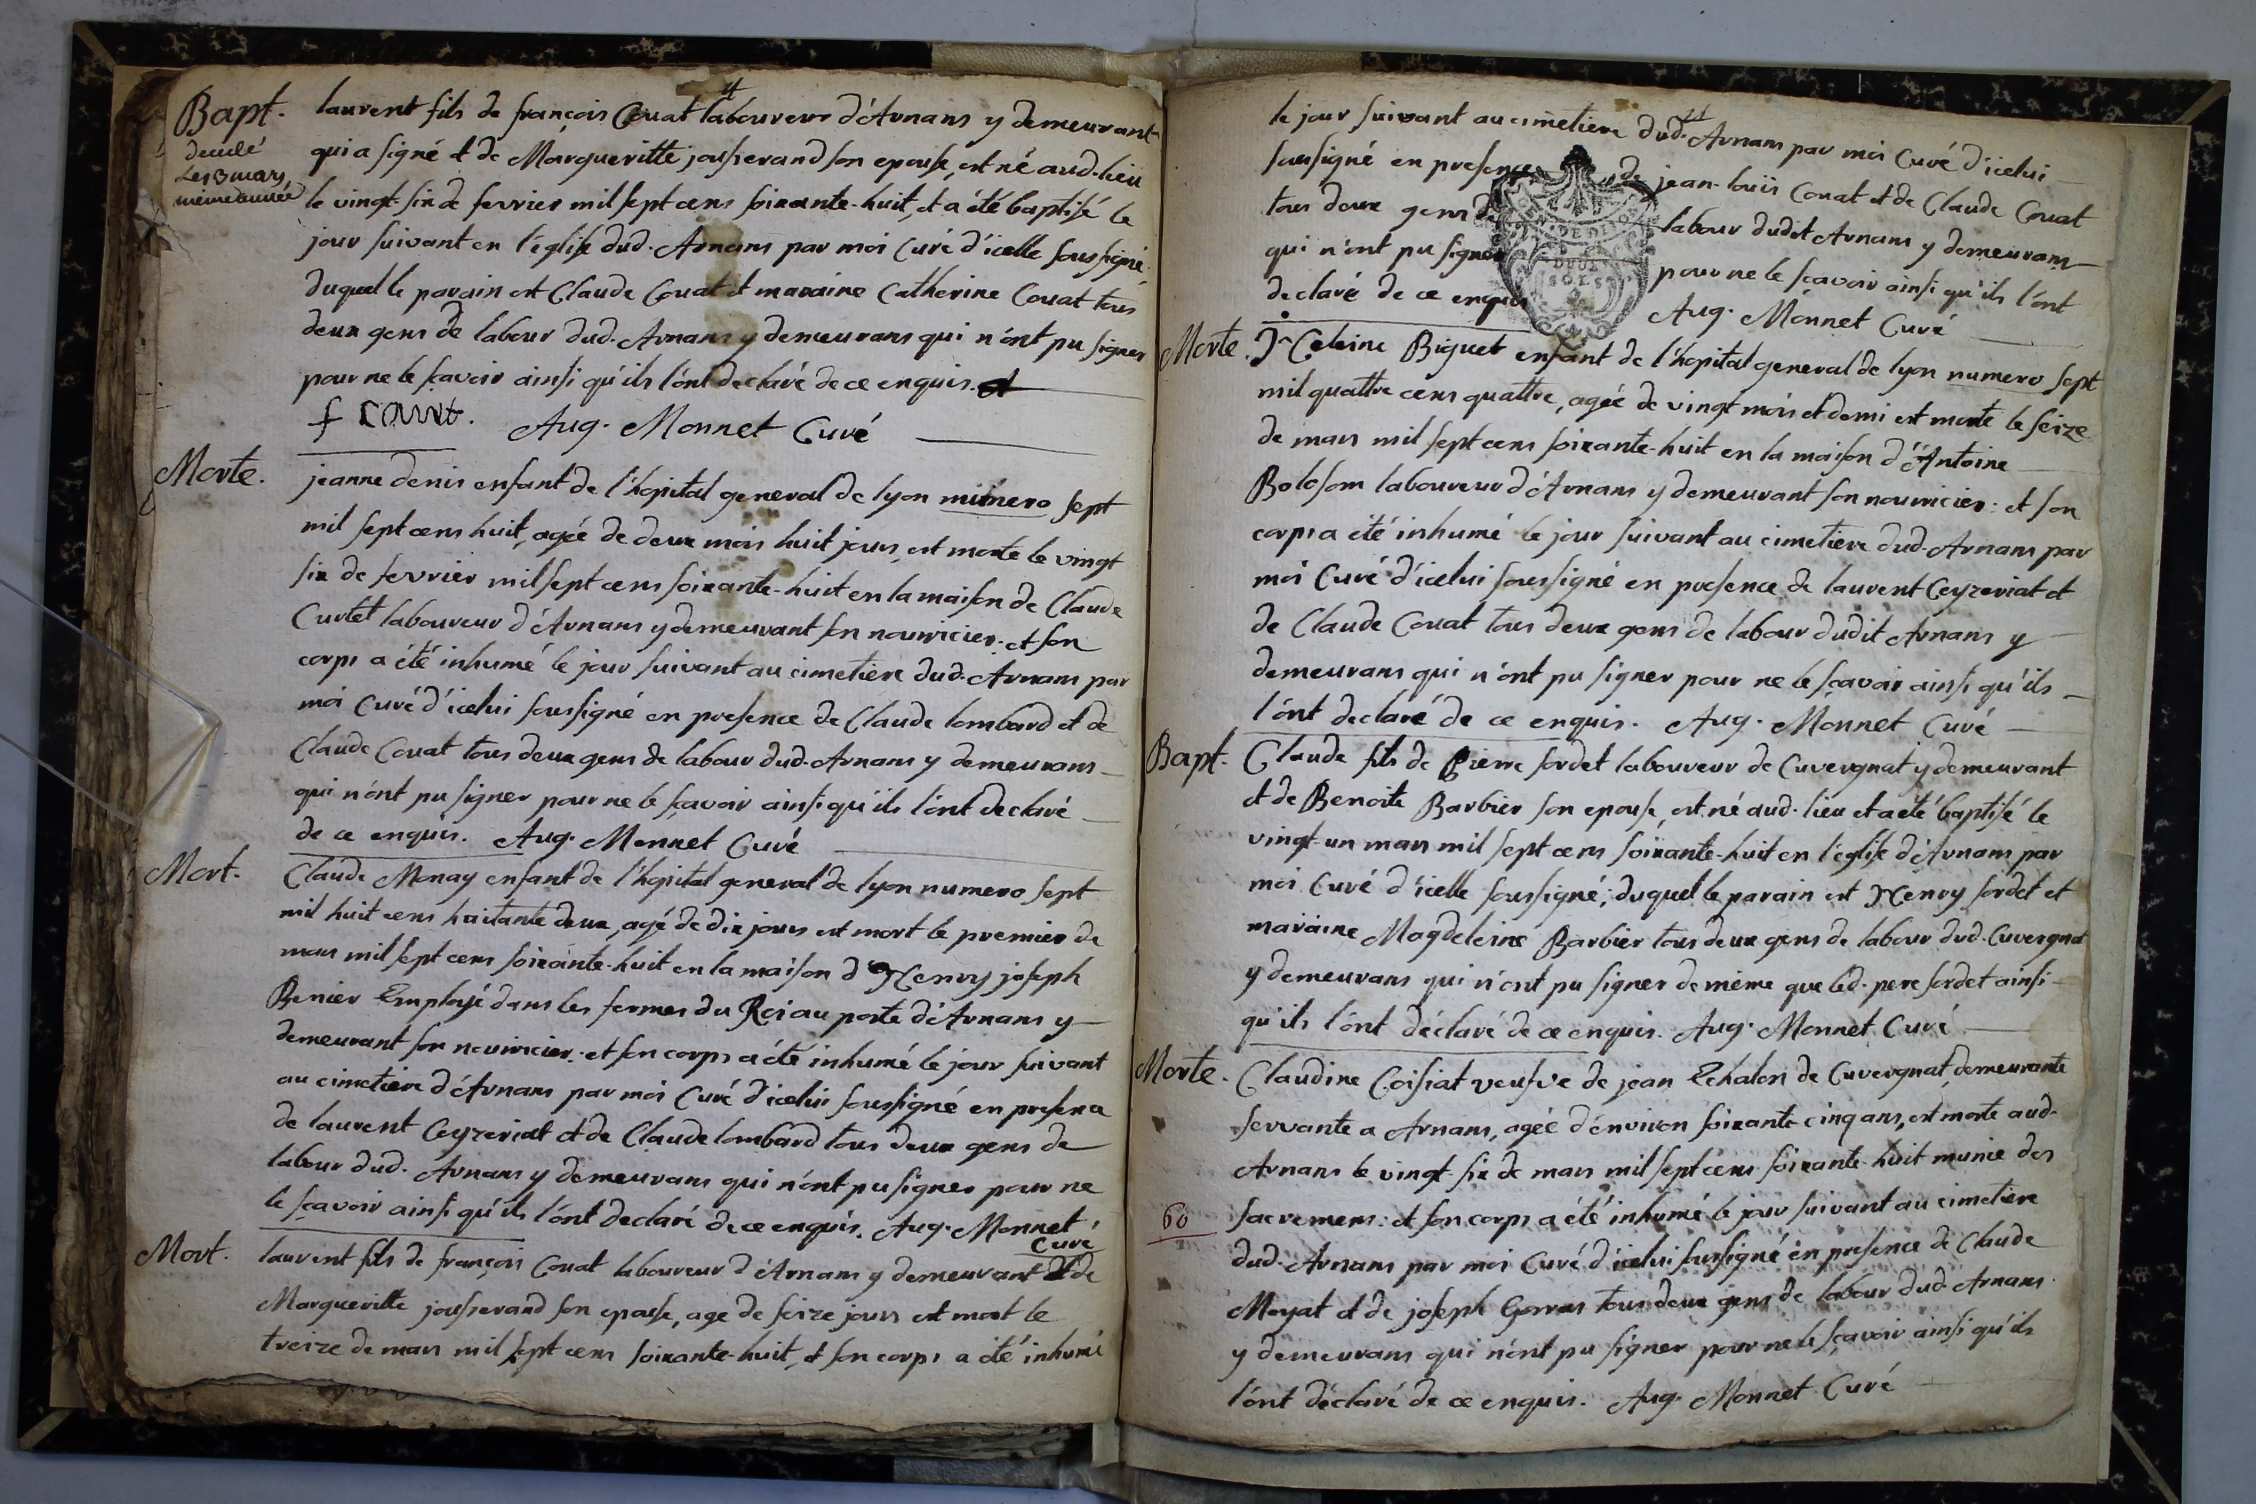 Bapt.
decedé
Le 13 mars
meme année
laurent fils de françois Couat laboureur d'Arnans y demeurant
qui a signé et de Margueritte jousserand son epouse, est né aud. lieu
le vingt-six de fevrier mil sept cens soixante-huit, et a été baptisé le
jour suivant en l'eglise dud. Arnans par moi Curé d'icelle soussigné
duquel le parain est Claude Couat et maraine Catherine Couat tous
deux gens de labour dud. Arnans y demeurans qui n'ônt pu signer
pour ne le sçavoir ainsi qu'ils l'ônt declaré de ce enquis.
f couat. Aug. Monnet Curé
Morte.
jeanne denis enfant de l'hopital general de lyon numero sept
mil sept cens huit, agée de deux mois huit jours, est morte le vingt
six de fevrier mil sept cens soixante-huit en la maison de Claude
Curtet laboureur d'Arnans y demeurant son nourricier: et son
corps a été inhumé le jour suivant au cimetiere dud. Arnans par
moi Curé d'icelui soussigné en presence de Claude lombard et de
Claude Couat tous deux gens de labour dud. Arnans y demeurans
qui n'ônt pu signer pour ne le sçavoir ainsi qu'ils l'ônt declaré
de ce enquis. Aug. Monnet Curé
Mort.
Claude Monay enfant de l'hopital general de lyon numero sept
mil huit cens huitante deux, agé de dix jours est mort le premier de
mars mil sept cens soixante-huit en la maison d'Henry joseph
Renier Employé dans les fermes du Roi au poste d'Arnans y
demeurant son nourricier: et son corps a été inhumé le jour suivant
au cimetiere d'Arnans par moi Curé d'icelui soussigné en presence
de laurent Ceyzeriat et de Claude lombard tous deux gens de
labour dud. Arnans y demeurans qui n'ônt pu signer pour ne
le sçavoir ainsi qu'ils l'ônt declaré de ce enquis. Aug. Monnet
Curé
Mort.
laurent fils de françois Couat laboureur d'Arnans y demeurant et de
Margueritte jousserand son epouse, age de seize jours est mort le
treize de mars mil sept cens soixante-huit, et son corps a été inhumé
le jour suivant au cimetiere dud. Arnans par moi Curé d'icelui
soussigné en presence de jean-louis Couat et de Claude Couat
tous deux gens de labour dudit Arnans y demeurans
qui n'ont pu signer pour ne le sçavoir ainsi qu'ils l'ônt
declaré de ce enquis Aug. Monnet Curé
GEN. DE DIJON
DEUX
SOLS
Morte.
Celeine Biguet enfant de l'hopital general de lyon numero sept
mil quattre cens quattre, agée de vingt mois et demi est morte le seize
de mars mil sept cens soixante-huit en la maison d'Antoine
Bolosom laboureur d'Arnans y demeurant son nourricier: et son
corps a été inhumé le jour suivant au cimetiere dud. Arnans par
moi Curé d'icelui soussigné en presence de laurent Ceyzeriat et
de Claude Couat tous deux gens de labour dudit Arnans y
demeurans qui n'ônt pu signer pour ne le sçavoir ainsi qu'ils
l'ônt declaré de ce enquis. Aug. Monnet Curé
Bapt.
Claude fils de Pierre sordet laboureur de Cuvergnat y demeurant
et de Benoite Barbier son epouse, est né aud. lieu et a été baptisé le
vingt-un mars mil sept cens soixante-huit en l'eglise d'Arnans par
moi Curé d'icelle soussigné; duquel le parain est Henry sordet et
maraine Magdeleine Barbier tous deux gens de labour dud. Cuvergnat
y demeurans qui n'ônt pu signer de même que led. pere sordet ainsi
qu'ils l'ônt déclaré de ce enquis. Aug. Monnet Curé
Morte.
Claudine Coisiat veufve de jean Echalon de Cuvergnat, demeurante
servante a Arnans, agée d'environ soixante cinq ans, est morte aud.
Arnans le vingt-six de mars mil sept cens soixante-huit munie des
60
sacremens: et son corps a été inhumé le jour suivant au cimetiere
dud. Arnans par moi Curé d'icelui soussigné en presence de Claude
Moyat et de joseph tous deux gens de labour dud. Arnans
y demeurans qui n'ônt pu signer pour ne le sçavoir ainsi qu'ils
l'ônt déclaré de ce enquis. Aug. Monnet Curé